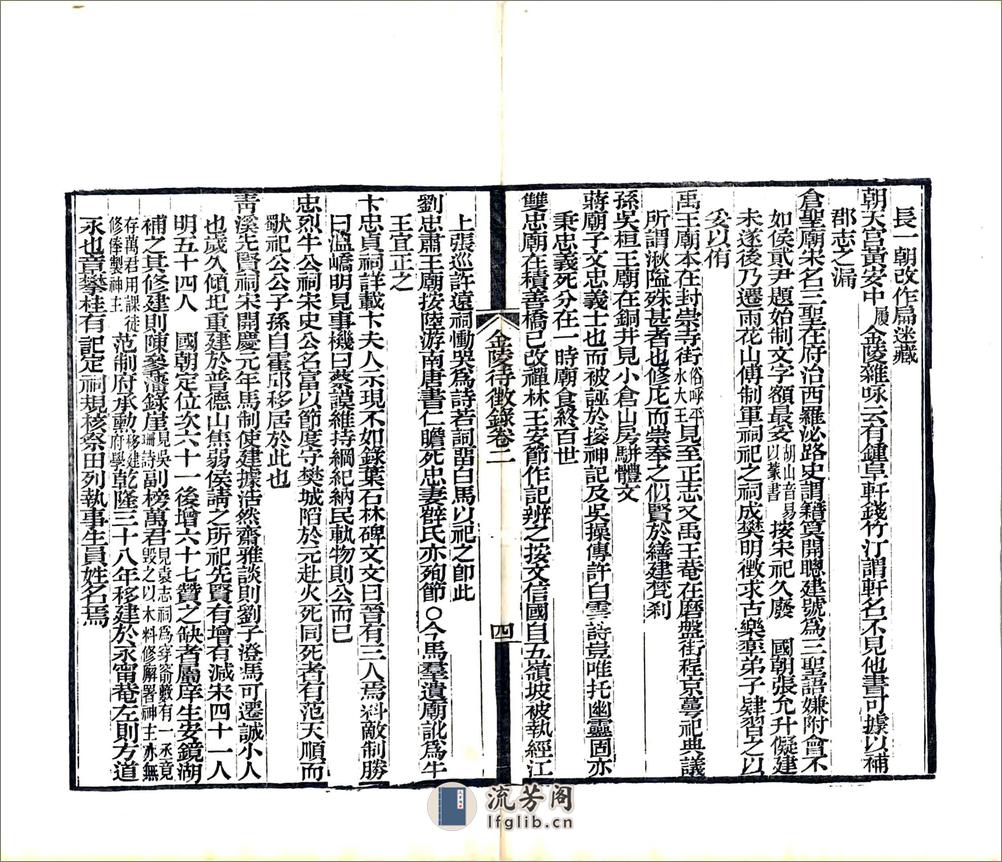 長　朝改作扃迷藏
朝天宮黃安中履金陵雜咏云有鍾阜軒錢竹汀謂軒名不見他書可據以補
郡志之漏
倉聖廟宋名三聖在府治西羅泌路史謂籍莫開聰建號爲三聖語嫌附會不
如侯貳尹題始制文字額最妥胡山音易以篆書按宋祀久廢　國朝張允升儗建
未遂後乃遷雨花山傅制軍祠祀之祠成樊明徵求古樂率弟子肄習之以
妥以侑
禹王廟本在封崇寺街俗呼平水大王見至正志又禹王菴在磨盤街程京萼祀典議
所謂湫隘殊甚者也修庀而崇奉之似賢於繕建梵刹
孫吳桓王廟在銅井見小倉山房駢體文
蔣廟子文忠義士也而被誣於搜神記及吳操傳許白雲詩豈唯托幽靈固亦
秉忠義死分在一時廟食終百世
雙忠廟在積善橋已改禪林王安節作記辨之按文信國自五嶺坡被執經江
金陵待徵錄卷二
四
上張巡許遠祠慟哭爲詩若詞謂白馬以祀之卽此
劉忠肅王廟按陸游南唐書仁瞻死忠妻薛氏亦殉節○今馬羣遺廟訛爲牛
王宜正之
卞忠貞祠詳載卞夫人示現不如錄葉石林碑文文曰晉有三人焉料敵制勝
曰溫嶠明見事機曰蔡謨維持綱紀納民軌物則公而已
忠烈牛公祠宋史公名富以節度守樊城陷於元赴火死同死者有范天順而
獸祀公公子孫自霍邱移居於此也
青溪先賢祠宋開慶元年馬制使建據浩然齋雅談則劉子澄馮可遷誠小人
也歲久傾圯重建於普德山焦弱侯請之所祀先賢有增有減宋四十一人
明五十四人　國朝定位次六十一後增六十七贊之缺者屬庠生安鏡湖
補之其修建則陳摻濤錄崖見吳珊詩副榜萬君見袁志祠爲穿窬數有一丞竟毀之以木料修廨署神主亦無
存萬君用課徒修俸製神主范制府承勳移建府學乾隆三十八年移建於永甯菴左則方道
永也章攀桂有記定祠規核祭田列執事生員姓名焉
流芳阁
lfglib.cn